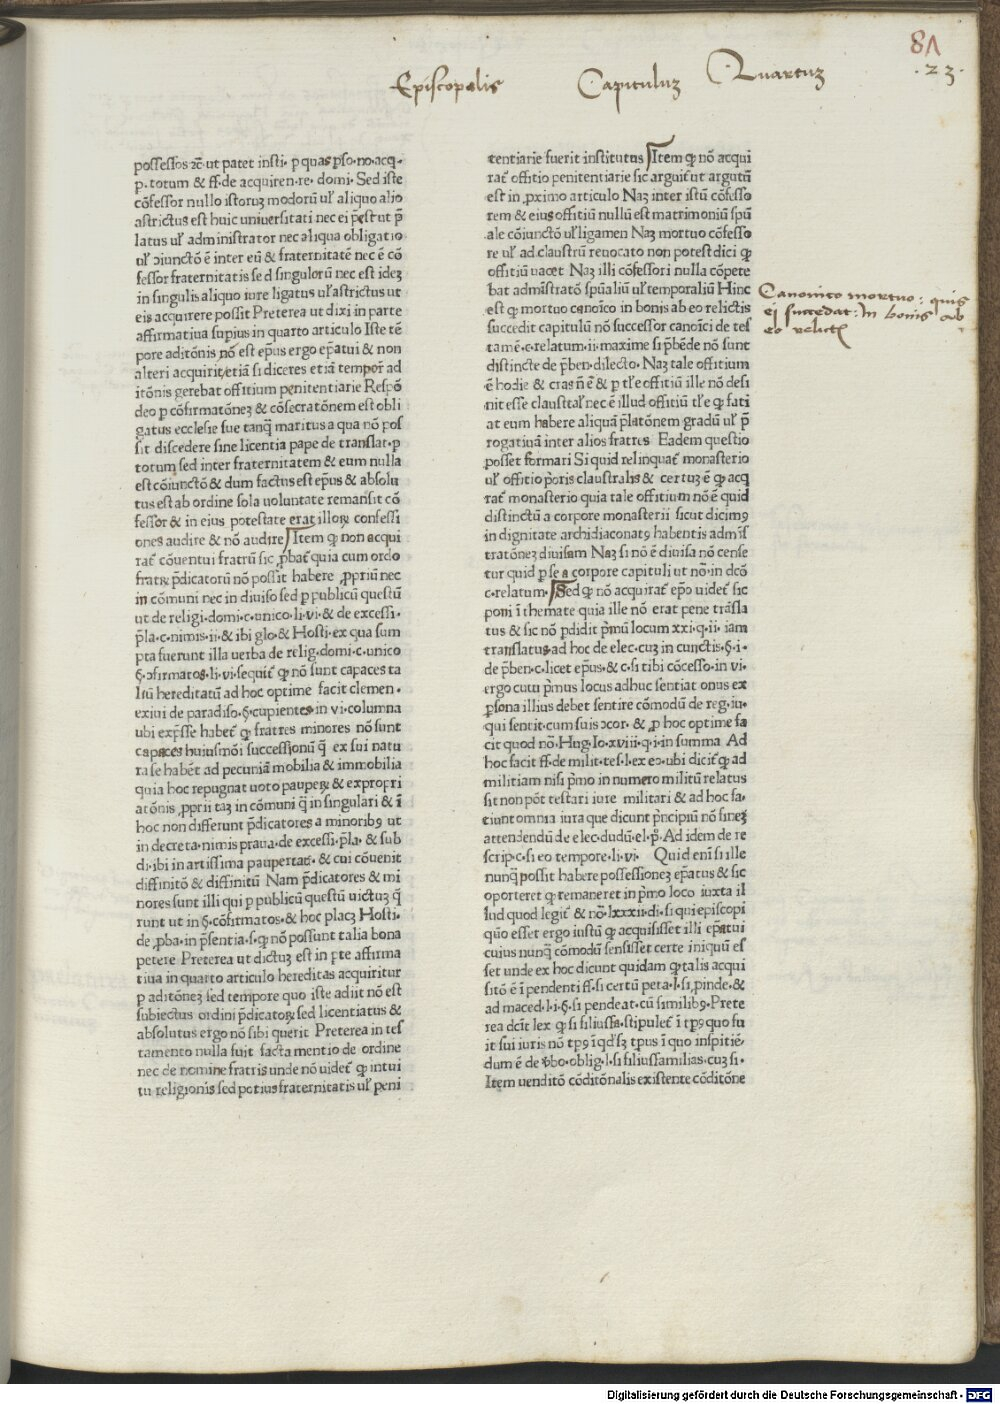 81
Episcopalis Capituluʒ Quartuʒ
.23.
possessos ⁊c̄· ut patet insti· p quas pso·no·acq·
p·totum & ff·de acquiren·re·domi· Sed iste
cōfessor nullo istoruʒ modorū uł aliquo alio
astrictus est huic uniuersitati nec ei p̄est ut p̄
latus uł administrator nec aliqua obligatio
uł ↄiunctō ē inter eū & fraternitatē nec ē cō
fessor fraternitatis sed singulorū nec est ideʒ
in singulis aliquo iure ligatus uł astrictus ut
eis acquirere possit Preterea ut dixi in parte
affirmatiua supius in quarto articulo Iste tē
pore aditōnis nō est ep̄us ergo ep̄atui & non
alteri acquirit/etiā si diceres etiā tempor̄ ad
itōnis gerebat offitium penitentiarie Respō
deo p cōfirmatōneʒ & cōsecratōnem est obli
gatus ecclesie sue tanq̄ maritus a qua nō pos
sit discedere sine licentia pape de translat·p
totum sed inter fraternitatem & eum nulla
est cōiunctō & dum factus est ep̄us & absolu
tus est ab ordine sola uoluntate remansit cō
fessor & in eius potestate erat illoꝝ confessi
ones audire & nō audire Item ꝙ non acqui
rat̄ cōuentui fratrū sic ꝓbat̄ quia cum ordo
fratꝝ p̄dicatorū nō possit habere ꝓpriū nec
in cōmuni nec in diuiso sed p publicū questū
ut de religi·domi·c·unico·li·vi·& de excessi·
p̄la·c·nimis·ii·& ibi glo·& Hosti·ex qua sum
pta fuerunt illa uerba de relig·domi·c·unico
§·ↄfirmatos·li·vi·sequit̄ ꝙ nō sunt capaces ta
liū hereditatū ad hoc optime facit clemen·
exiui de paradiso·§·cupientes in vi·columna
ubi exp̄sse habet̄ ꝙ fratres minores nō sunt
capaces huiusmōi successionū q̄ ex sui natu
ra se habēt ad pecuniā mobilia & immobilia
quia hoc repugnat uoto paupeꝝ & expropri
atōnis ꝓprii taʒ in cōmuni q̄ in singulari & ī
hoc non differunt p̄dicatores a minoribꝰ ut
in decreta·nimis praua·de excessi·p̄la·& sub
di·ibi in artissima paupertat̄·& cui cōuenit
diffinitō & diffinitū Nam p̄dicatores & mi
nores sunt illi qui p publicū questū uictuʒ q̄
runt ut in §·cōfirmatos·& hoc placʒ Hosti·
de ꝓba·in p̄sentia·s·ꝙ nō possunt talia bona
petere Preterea ut dictuʒ est in p̱te affirma
tiua in quarto articulo hereditas acquiritur
p aditōneʒ sed tempore quo iste adiit nō est
subiectus ordini p̄dicatoꝝ sed licentiatus &
absolutus ergo nō sibi querit Preterea in tes
tamento nulla fuit facta mentio de ordine
nec de nomine fratris unde nō uidet̄ ꝙ intui
tu religionis sed potius fraternitatis uł peni
tentiarie fuerit institutus Item ꝙ nō acqui
rat̄ offitio penitentiarie sic arguit̄ ut argutū
est in ꝓximo articulo Naʒ inter istū cōfesso
rem & eius offitiū nullū est matrimoniū spū
ale cōiunctō uł ligamen Naʒ mortuo cōfesso
re uł ad claustrū reuocato non potest dici ꝙ
offitiū uacet Naʒ illi cōfessori nulla cōpete
bat admīstratō spūaliū uł temporaliū Hinc
est ꝙ mortuo canōico in bonis ab eo relictis
succedit capitulū nō successor canoīci de tes
tamē·c·relatum·ii·maxime si p̄bēde nō sunt
distincte de p̄ben·dilecto· Naʒ tale offitium
ē hodie & cras nē ē & p tłe offitiū ille nō desi
nit esse claustrał nec ē illud offitiū tłe ꝙ fati
at eum habere aliquā p̄latōnem gradū uł p̄
rogatiuā inter alios fratres Eadem questio
posset formari Si quid relinquat̄ monasterio
uł offitio p̄oris claustralis & certuʒ ē ꝙ acq
rat̄ monasterio quia tale offitium nō ē quid
distinctū a corpore monasterii sicut dicimꝰ
in dignitate archidiaconatꝰ habentis admīs
tratōneʒ diuisam Naʒ si nō ē diuisa nō cense
tur quid p se a corpore capituli ut nō·in dcō
c·relatum· Sed ꝙ nō acquirat̄ ep̄o uidet̄ sic
poni ī themate quia ille nō erat pene trāsla
tus & sic nō p̱didit p̄mū locum xxi·q·ii·iam
translatus ad hoc de elec·cuʒ in cunctis·§·i·
de p̄ben·c·licet ep̄us·& c·si tibi cōcesso·in vi·
ergo cuiu p̄mus locus adhuc sentiat onus ex
p̱sona illius debet sentire cōmodū de reg·iu·
qui sentit·cum suis ↄcor·& ꝓ hoc optime fa
cit quod nō·Hug·Io·xviii·q·i·in summa Ad
hoc facit ff·de milit·tes·l·ex eo·ubi dicit̄ ꝙ ad
militiam nisi p̄mo in numero militū relatus
sit non pōt testari iure militari & ad hoc fa·
ciunt omnia iura que dicunt p̄ncipiū nō sineʒ
attendendū de elec·dudū·el·p̊· Ad idem de re
scrip·c·si eo tempore·li·vi· Quid enī si ille
nunq̄ possit habere possessioneʒ ep̄atus & sic
oporteret ꝙ remaneret in p̄mo loco iuxta il
lud quod legit̄ & nō·lxxxii·di·si qui episcopi
quō esset ergo iustū ꝙ acquisisset illi ep̄atui
cuius nunq̄ cōmodū sensisset certe iniquū es
set unde ex hoc dicunt quidam ꝙ talis acqui
sitō ē ī pendenti ff·si certū peta·l·si ꝓinde·&
ad maced·l·i·§·si pendeat·cū similibꝰ·Prete
rea dcīt lex ꝙ si filiusfa·stipulet̄ ī tp̄ꝰ quo fu
it sui iuris nō tp̄ꝰ īqdʼsʒ tp̄us ī quo inspitiē·
dum ē de v̄bo·oblig·l·si filiusfamilias·cuʒ si·
Item uenditō cōditōnalis existente cōditōne
Canonico mortuo: quis
ei succedat: in bonis ab
eo relictis
Digitalisierung gefördert durch die Deutsche Forschungsgemeinschaft - DFG